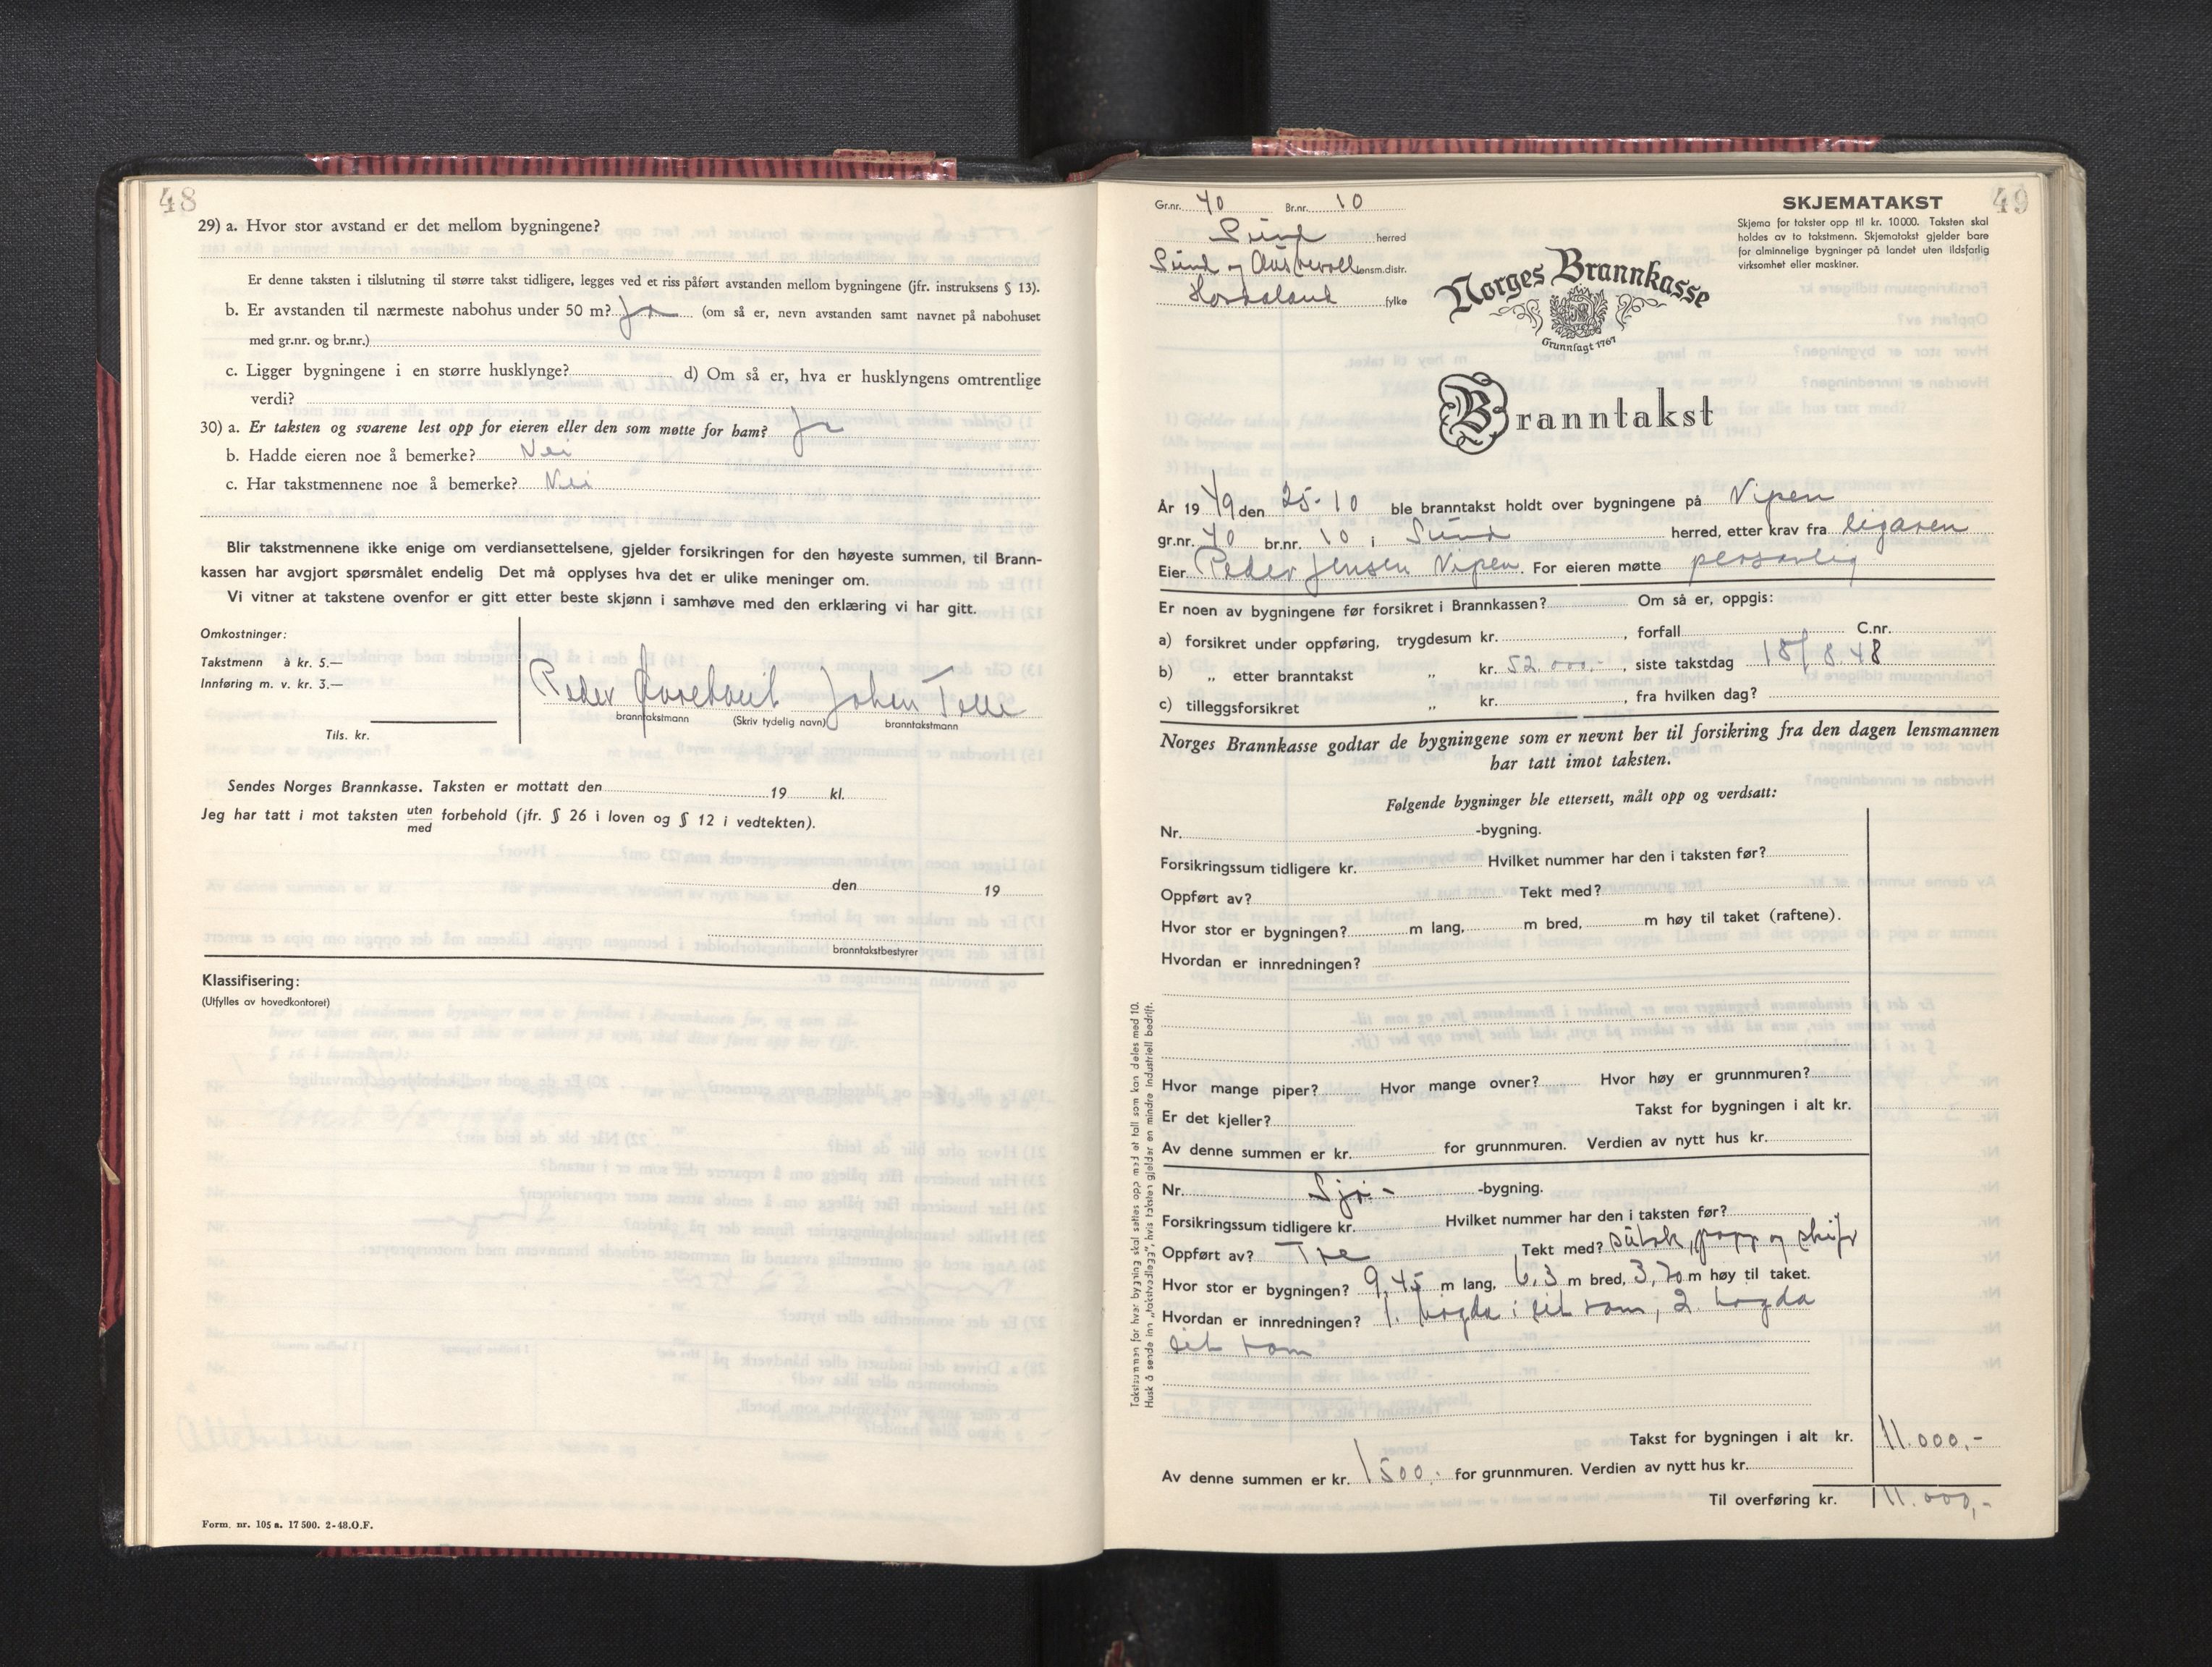 48
29) a. Hvor stor avstand er det mellom bygningene?
Er denne taksten i tilslutning til større takst tidligere, legges ved et riss påført avstanden mellom bygningene (jfr. instruksens § 13).
b. Er avstanden til nærmeste nabohus under 50 m? Ja (om så er, nevn avstanden samt navnet på nabohuset
med gr.nr. og br.nr.)
c. Ligger bygningene i en større husklynge? d) Om så er, hva er husklyngens omtrentlige
verdi?
30) a. Er taksten og svarene lest opp for eieren eller den som møtte for ham? Ja
b. Hadde eieren noe å bemerke? Nei
c. Har takstmennene noe å bemerke? Nei
Blir takstmennene ikke enige om verdiansettelsene, gjelder forsikringen for den høyeste summen, til Brann-
kassen har avgjort spørsmålet endelig Det må opplyses hva det er ulike meninger om.
Vi vitner at takstene ovenfor er gitt etter beste skjønn i samhøve med den erklæring vi har gitt.
Omkostninger:
Takstmenn à kr. 5.—
Innføring m. v. kr. 3.—
Tils. kr.
Peder Johan Telle
branntakstmann (Skriv tydelig navn) branntakstmann
Sendes Norges Brannkasse. Taksten er mottatt den 19 kl.
Jeg har tatt i mot taksten uten
med forbehold (jfr. § 26 i loven og § 12 i vedtekten).
den 19
branntakstbestyrer
Klassifisering:
(Utfylles av hovedkontoret)
Form. nr. 105 a. 17 500. 2-48.O.F.
49
Gr.nr. 40 Br.nr. 10
Sund herred
Sund og Austevoll lensm.distr.
Hordaland fylke
SKJEMATAKST
Skjema for takster opp til kr. 10 000. Taksten skal
holdes av to takstmenn. Skjematakst gjelder bare
for alminnelige bygninger på landet uten ildsfarlig
virksomhet eller maskiner.
Norges Brannkasse
Grunnlagt 1767
Branntakst
År 1949 den 25-10 ble branntakst holdt over bygningene på Vipen
gr.nr. 40 br.nr. 10 i Sund herred, etter krav fra eigaren
Eier Peder Jensen Vipen. For eieren møtte personlig
Er noen av bygningene før forsikret i Brannkassen? Om så er, oppgis:
a) forsikret under oppføring, trygdesum kr. , forfall C.nr.
b) „ etter branntakst „ kr. 52.000.- , siste takstdag 18/8.48
c) tilleggsforsikret „ kr. , fra hvilken dag?
Norges Brannkasse godtar de bygningene som er nevnt her til forsikring fra den dagen lensmannen
har tatt imot taksten.
Følgende bygninger ble ettersett, målt opp og verdsatt:
Nr. -bygning.
Forsikringssum tidligere kr. Hvilket nummer har den i taksten før?
Oppført av? Tekt med?
Hvor stor er bygningen? m lang, m bred, m høy til taket (raftene).
Hvordan er innredningen?
Hvor mange piper? Hvor mange ovner? Hvor høy er grunnmuren?
Er det kjeller? Takst for bygningen i alt kr.
Av denne summen er kr. for grunnmuren. Verdien av nytt hus kr.
Nr. Sjø- -bygning.
Forsikringssum tidligere kr. Hvilket nummer har den i taksten før?
Oppført av? Tre Tekt med? sutak, papp og skifr
Hvor stor er bygningen? 9,45 m lang, 6,3 m bred, 3,70 m høy til taket.
Hvordan er innredningen? 1. høgda: eit rom, 2. høgda
eit rom
Takst for bygningen i alt kr. 11.000,-
Av denne summen er kr. 1500,- for grunnmuren. Verdien av nytt hus kr.
Til overføring kr. 11.000,-
Takstsummen for hver bygning skal settes opp med et tall som kan deles med 10.
Husk å sende inn „takstvedlegg", hvis taksten gjelder en mindre industriell bedrift.